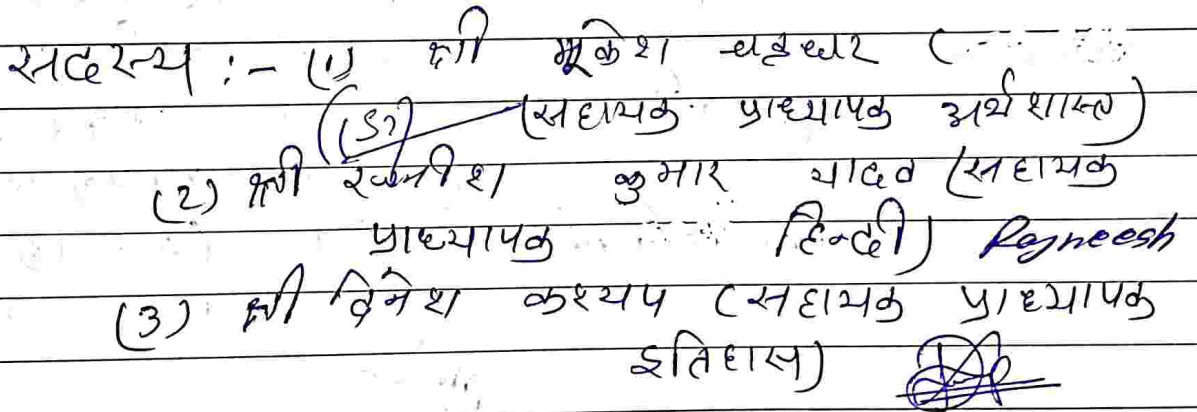 सदस्य :- (1) श्री मूकेश चहधर (
(सहायक प्राध्यापक अर्थशास्त्र)
(2) श्री रजनीश कुमार यादव (सहायक
प्राध्यापक हिन्दी) Rajneesh
(3) श्री दिनेश कश्यप (सहायक प्राध्यापक
इतिहास)